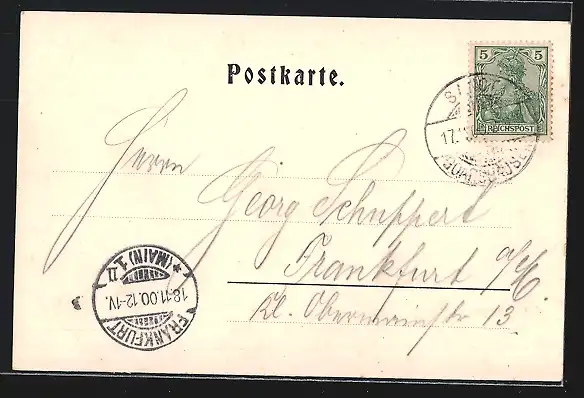 5 5
REICHSPOST
Postkarte.
17.
Herrn
Georg Schuppert
Frankfurt a/M.
Kl. Obermainstr 13
FRANKFURT
18.11.00.12-1V.
* (MAIN) 1. II